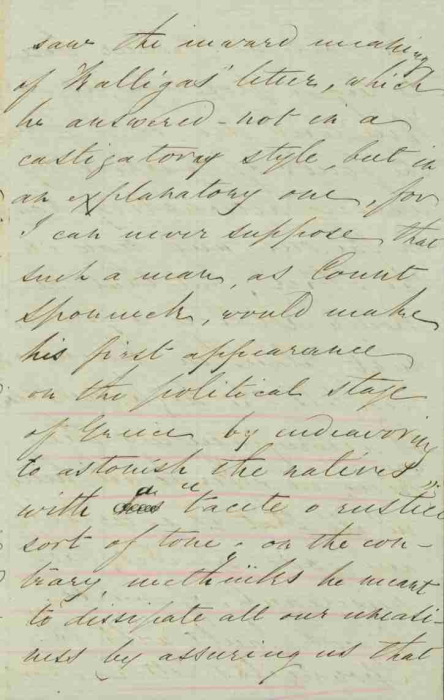 saw the inward meaning
of Kalligas' letter, which
he answered - not in a
castigatory style, but in
an explanatory one, for
I can never suppose that
such a man, as Count
Sponneck, would make
his first appearance
on the political stage
of Greece by endeavoring
to astonish the natives
with a "tacete o rustici"
sort of tone. on the con-
trary, methinks he meant
to dissipate all our uneasi-
ness by assuring us that